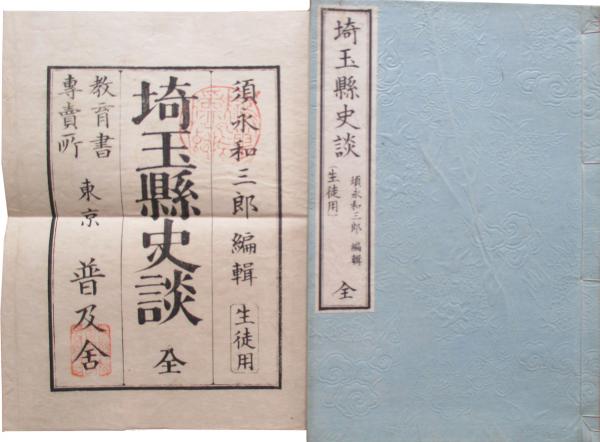 須永和三郎編輯 生徒用
埼玉縣史談 全
教育書
專賣所
東京 普及舍
埼玉縣史談
須永和三郎 編輯
(生徒用)
全